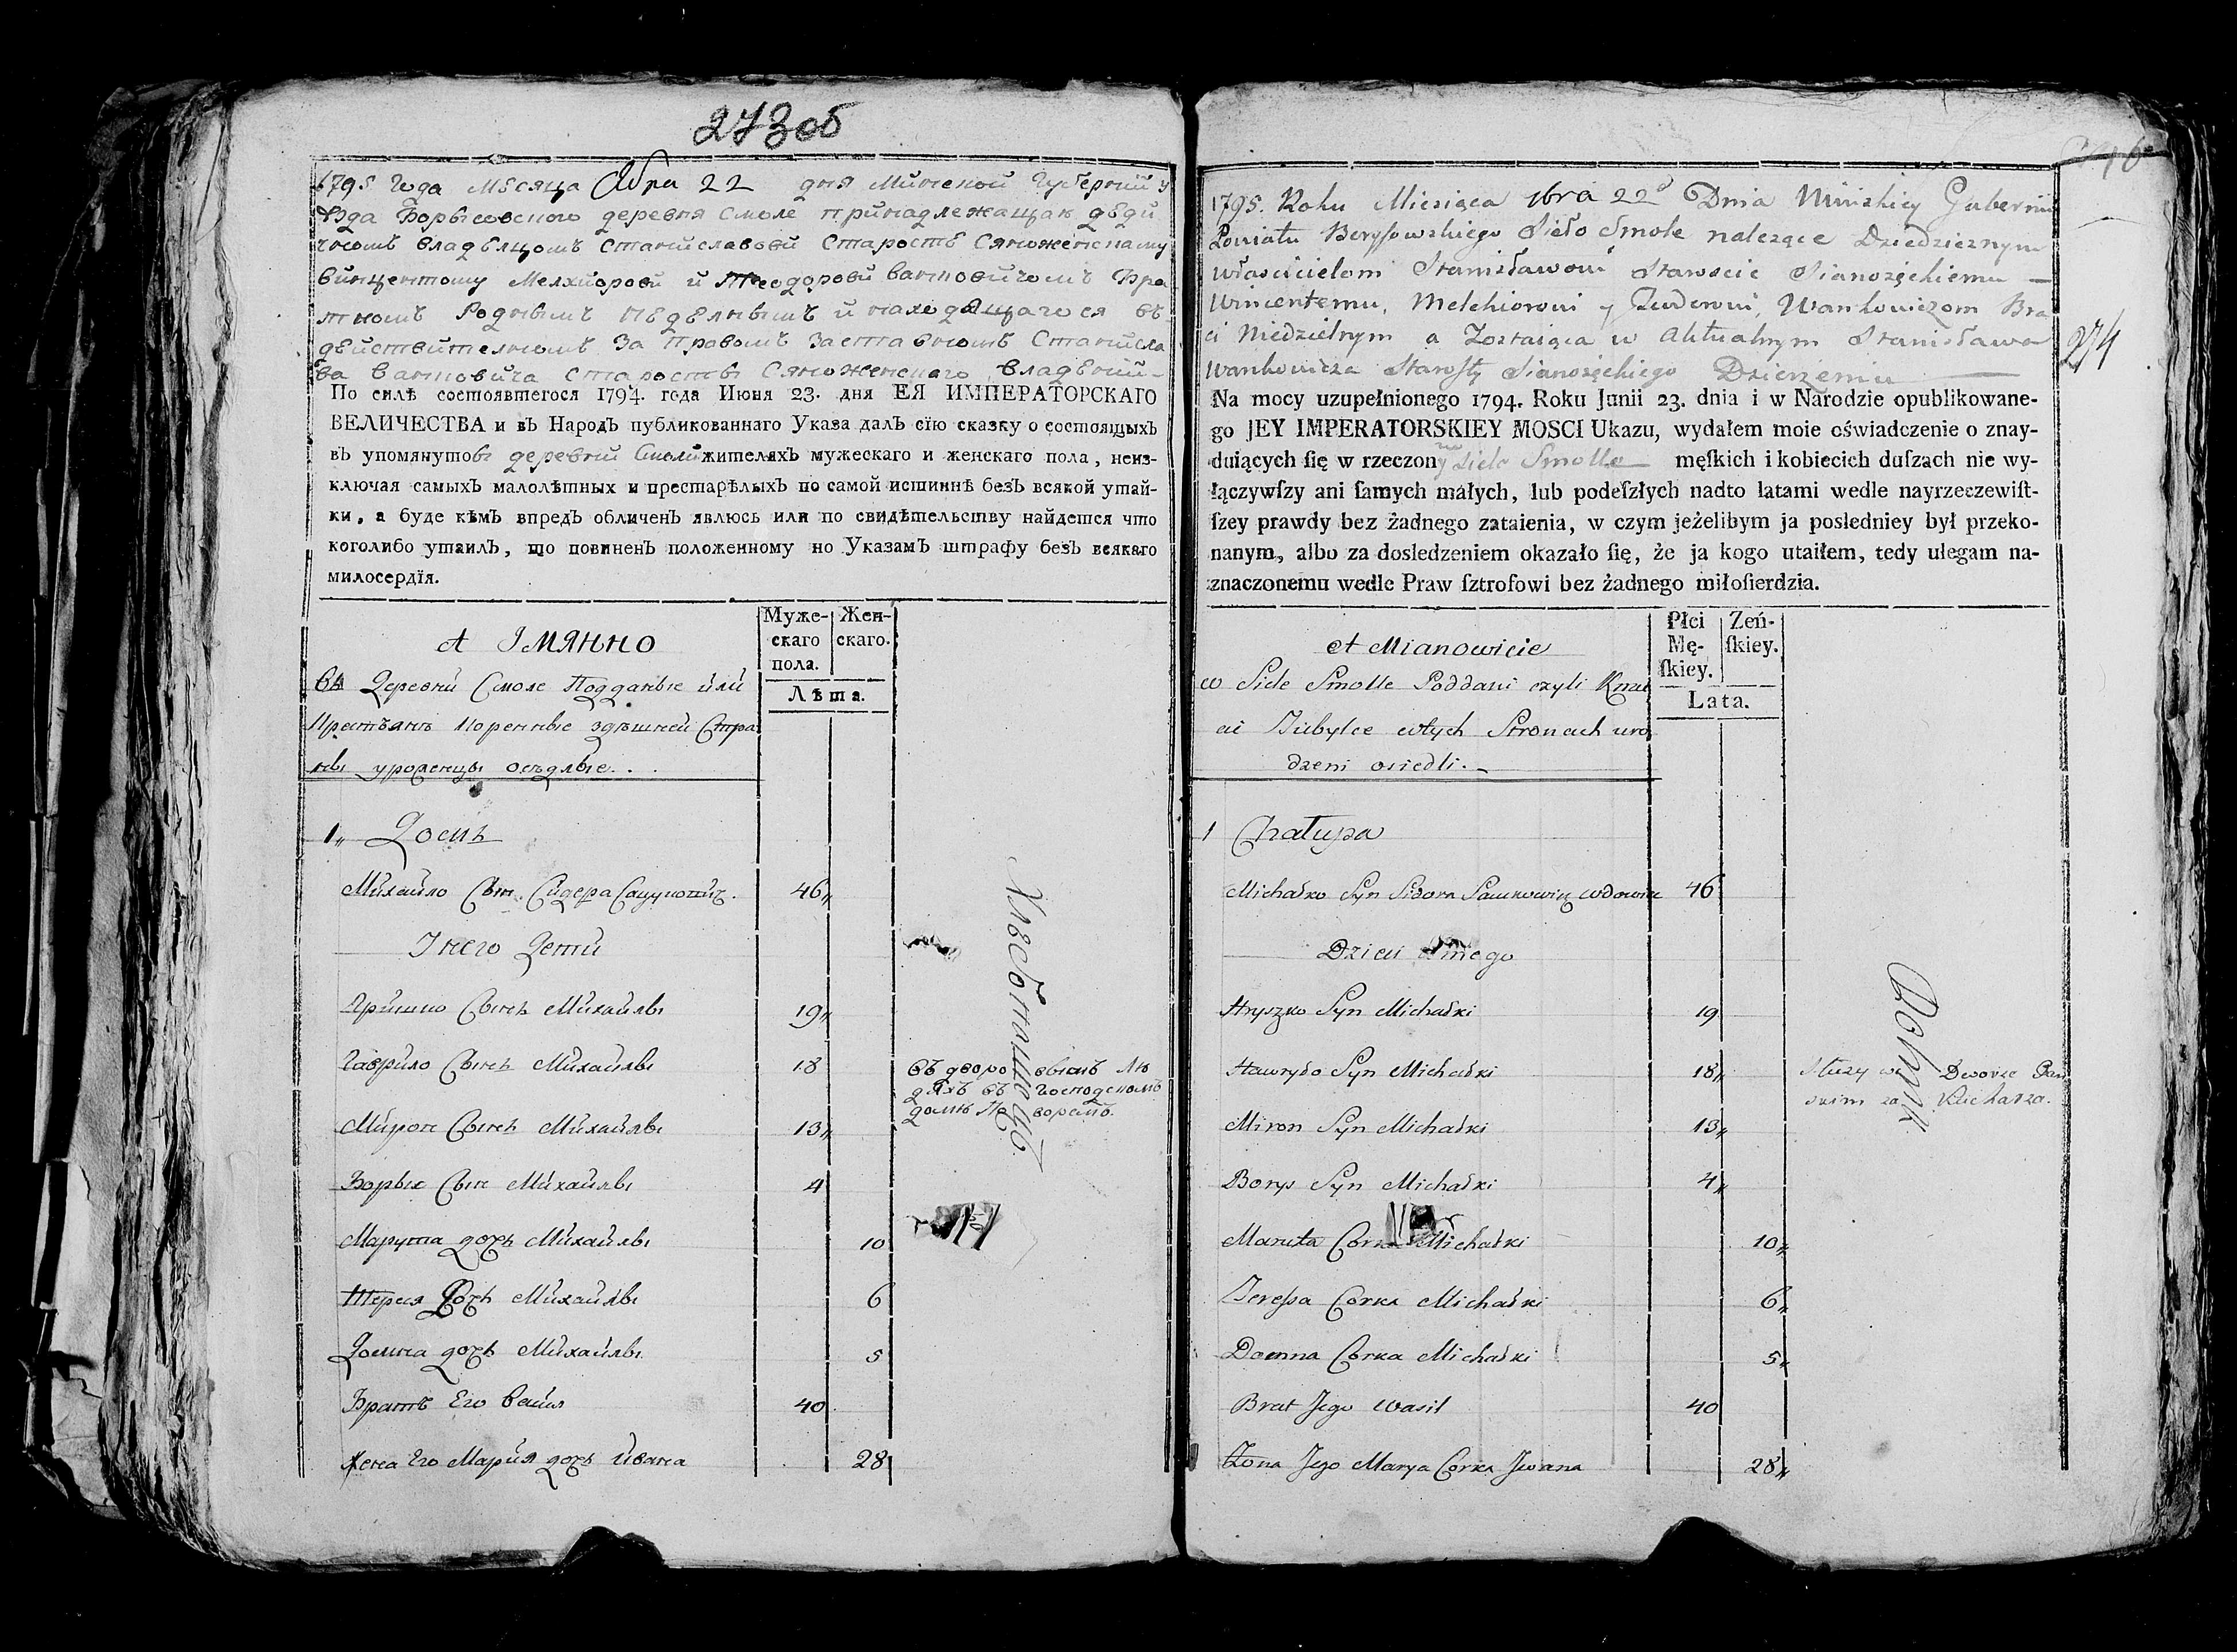 273об
1795 года месяца Ября 22 дня Минской Губернии у
ѣзда Борысовского деревня Смоле принадлежащая дѣди
чномъ владѣлцомъ Станиславови Старостѣ Сяноженскому
Винцентому Мелхиорови и Теодорови Ванковичомъ Бра
тномъ Роднымъ Недѣлнымъ и находящагося въ
дѣйствителномъ За Правомъ Заставномъ Станисла
ва Ванковича Старосты Сяноженского Владѣнии
По силѣ состоявшегося 1794. года Июня 23. дня ЕЯ ИМПЕРАТОРСКАГО
ВЕЛИЧЕСТВА и вЪ НародЪ публикованнаго Указа далЪ сїю сказку о состоящыхЪ
вЪ упомянутой деревни Смоли жителяхЪ мужескаго и женскаго пола, неиз-
ключая самыхЪ малолѣтныхЪ и престарѣлыхЪ по самой истиннѣ безЪ всякой утай-
ки, а буде кѣмЪ впредЪ обличенЪ явлюсь или по свидѣтельству найдется что
коголибо утаилЪ, то повиненЪ положенному по УказамЪ штрафу безЪ всякаго
милосердїя.
А Імянно
Муже-
скаго
пола.
Жен-
скаго.
Лѣта.
Въ Деревни Смоле Подданые или
Крестьянъ Коренные здѣшней Стра
ны уроженцы оседлые..
1„ Домъ
Михайло Сын Сидера Сацукович. 46„
У него Дети
Гришко Сынъ Михайлы 19„
Гаврило Сынъ Михайлы 18
въ дворовымъ Лю
дяхъ въ господскомъ
домѣ Поворомъ.
Хлебопашецъ
Мирон Сынъ Михайлы 13„
Борыс Сын Михайлы 4
Марута дочъ Михайлы 10
Тереся Дочъ Михайлы 6
Домна дочъ Михайлы 5
Братъ Его Васил 40
Жена Его Мария дочъ Ивана 28
274
1795. Roku Miesiąca 9bra 22º Dnia Minskiey Gubernii
Powiatu Borysowskiego Sieło Smole należące Dziedzicznym
Właścicielom Stanisławowi Staroscie Sianozęckiemu —
Wincentemu, Melchiorowi y Teodorowi, Wankowiczom Bra
ci Niedzielnym a Zostaiąca w Aktualnym Stanisława
Wankowicza Starosty Sianozęckiego Dzierżeniu —
Na mocy uzupełnionego 1794. Roku Junii 23. dnia i w Narodzie opublikowane-
go JEY IMPERATORSKIEY MOSCI Ukazu, wydałem moie oświadczenie o znay-
duiących ſię w rzeczonym Siele Smolle męſkich i kobiecich duſzach nie wy-
łączywſzy ani ſamych małych, lub podeſzłych nadto latami wedle nayrzeczewiſt-
ſzey prawdy bez żadnego zataienia, w czym jeżelibym ja posledniey był przeko-
nanym, albo za dosledzeniem okazało ſię, że ja kogo utaiłem, tedy ulegam na-
znaczonemu wedle Praw ſztrofowi bez żadnego miłoſierdzia.
A Mianowicie
Płci
Mę-
ſkiey.
Zeń-
ſkiey.
Lata.
w Siele Smolle Poddani czyli Kmie
ci Tubylce w tych Stronach uro
dzeni osiedli.
1 Chałupa
Michałko Syn Sidora Sawkowicz wdowiec 46
Dzieci Jmego
Hryszko Syn Michałki 19
Hawryło Syn Michałki 18„
Służy we Dworze Pań
skim za Kucharza.
Rolnik
Miron Syn Michałki 13„
Borys Syn Michałki 4„
Maruta Corka Michałki 10„
Teressa Corka Michałki 6„
Domna Corka Michałki 5„
Brat Jego Wasil 40
Żona Jego Marya Corka Jwana 28„